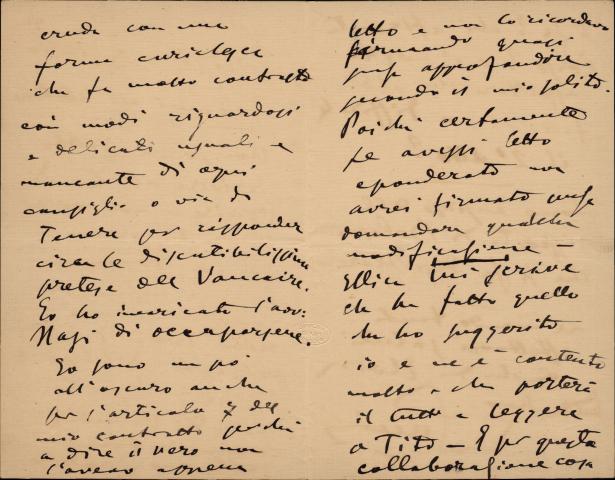 cruda con una
forma curialesca
che fa molto contrasto
coi modi riguardosi
e delicati usuali e
mancante di ogni
consiglio o via da
tenere per rispondere
circa le discutibilissime
pretese del Vaucaire.
Io ho incaricato l'avv:
Nasi di occuparsene.
Io sono un po
all'oscuro anche
per l'articolo 7 del
mio contratto perchè
a dire il vero non
l'avevo appena
letto e non lo ricordavo
firmando quasi
senza approfondire
secondo il mio solito.
Poichè certamente
se avessi letto
e ponderato non
avrei firmato senza
domandare qualche
modificazione —
Ellica mi scrive
che ha fatto quello
che ho suggerito
io e ne è contento
molto e che porterà
il tutto a leggere
a Tito — E per questa
collaborazione cosa